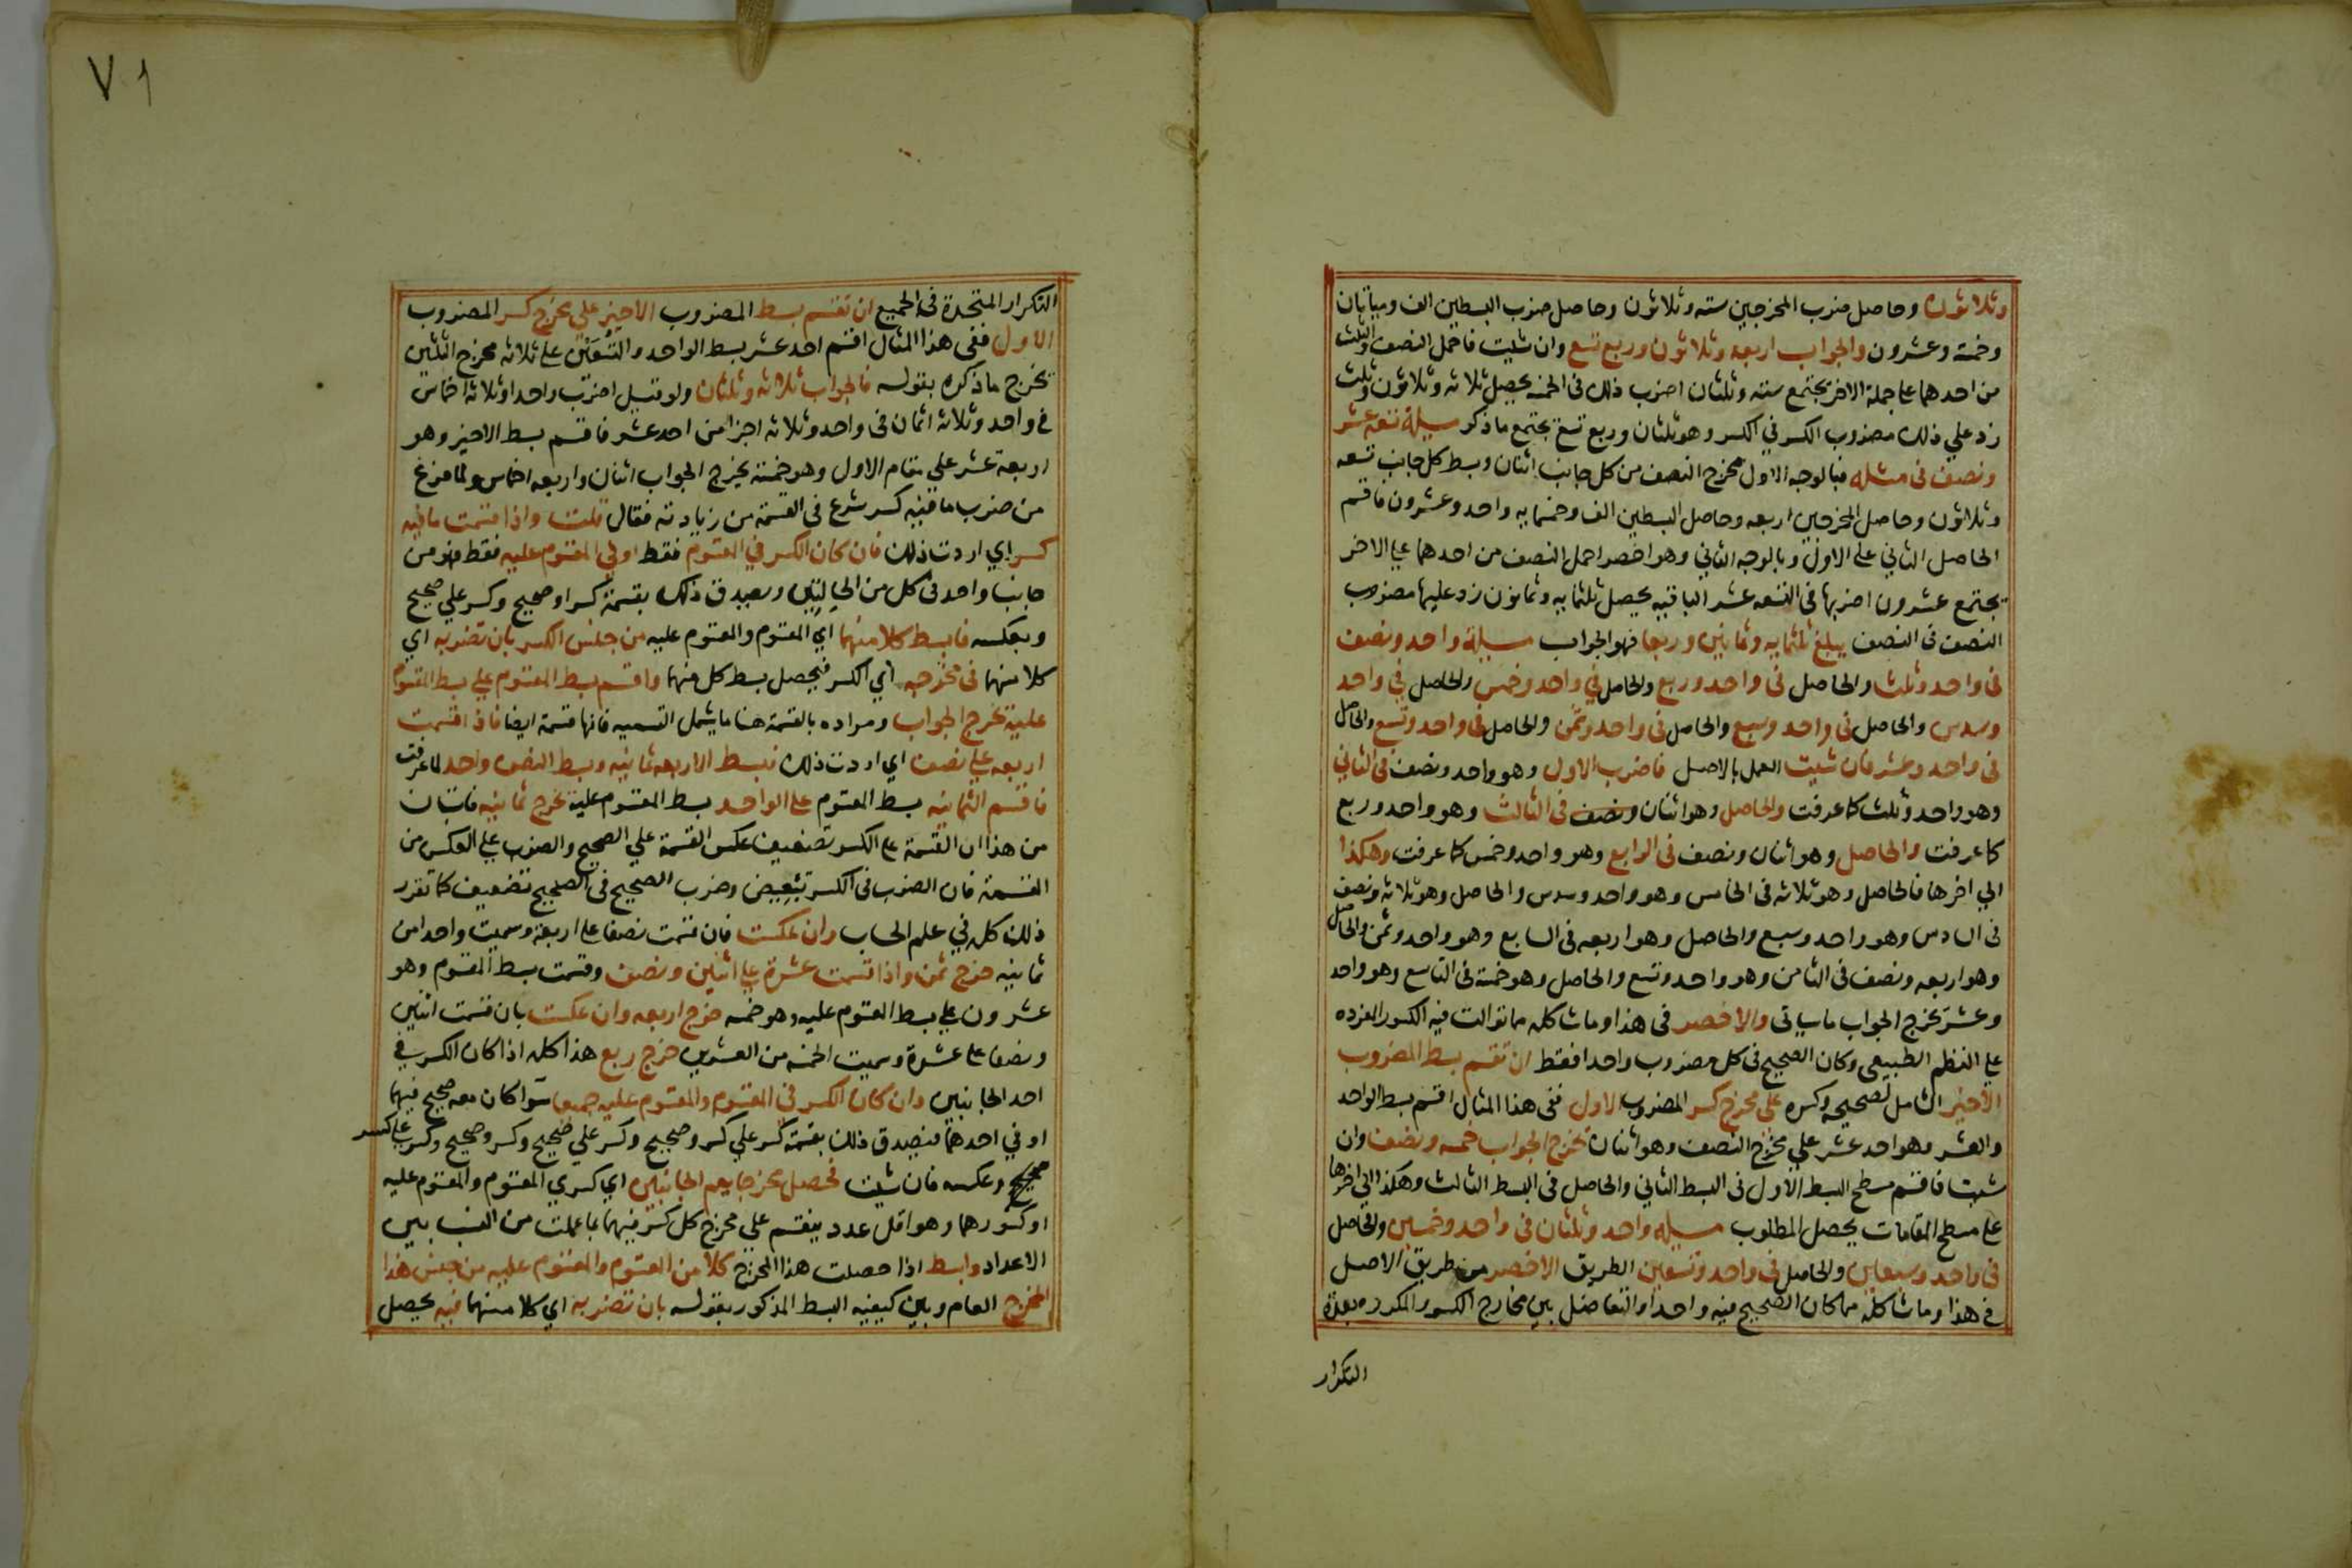 وثلاثون وحاصل ضرب المخرجين سته وثلاثون وحاصل ضرب البسطين الف ومايتان
وخمسة وعشرون والجواب اربعه وثلاثون وربع تسع وان شيت فاحمل النصف والثلث
من احدهما على جملة الاخر يجتمع سته وثلثان اضرب ذلك في الخمسه يحصل ثلاثه وثلاثون وثلث
زد علي ذلك مضروب الكسر في الكسر وهو ثلثان وربع تسع يجتمع ما ذكر مسيلة تسعه عشر
ونصف في مثله فبالوجه الاول مخرج النصف من كل جانب اثنان وبسط كل جانب تسعه
وثلاثون وحاصل المخرجين اربعه وحاصل البسطين الف وخمسمايه واحد وعشرون فاقسم
الحاصل الثاني على الاول وبالوجه الثاني وهو اخصر احمل النصف من احدهما علي الاخر
يجتمع عشرون اضربها في التسعه عشر الباقيه يحصل ثلثمايه وثمانون زد عليها مضروب
النصف في النصف يبلغ ثلثمايه وثمانين وربعا فهو الجواب مسيلة واحد ونصف
في واحد وثلث والحاصل في واحد وربع والحاصل في واحد وخمس والحاصل في واحد
وسدس والحاصل في واحد وسبع والحاصل في واحد وثمن والحاصل في واحد وتسع والحاصل
في واحد وعشر فان شيت العمل بالاصل فاضرب الاول وهو واحد ونصف في الثاني
وهو واحد وثلث كما عرفت والحاصل وهو اثنان ونصف في الثالث وهو واحد وربع
كما عرفت والحاصل وهو اثنان ونصف في الرابع وهو واحد وخمس كما عرفت وهكذا
الي اخرها فالحاصل وهو ثلاثه في الخامس وهو واحد وسدس والحاصل وهو ثلاثه ونصف
في السادس وهو واحد وسبع والحاصل وهو اربعه في السابع وهو واحد وثمن والحاصل
وهو اربعه ونصف في الثامن وهو واحد وتسع والحاصل وهو خمسة في التاسع وهو واحد
وعشر يخرج الجواب ما سياتي والاخصر في هذا وما شاكله مما توالت فيه الكسور المفرده
علي النظم الطبيعي وكان الصحيح في كل مضروب واحدا فقط ان تقسم بسط المضروب
الاخير الشامل لصحيحه وكسره على مخرج كسر المضروب الاول ففي هذا المثال اقسم بسط الواحد
والعشر وهو احد عشر علي مخرج النصف وهو اثنان يخرج الجواب خمسه ونصف وان
شيت فاقسم مسطح البسط الاول في البسط الثاني والحاصل في البسط الثالث وهكذا الي اخرها
على مسطح المقامات يحصل المطلوب مسيله واحد وثلثان في واحد وخمسين والحاصل
في واحد وسبعين والحاصل في واحد وتسعين الطريق الاخصر من طريق الاصل
في هذا وما شاكله مما كان الصحيح فيه واحدا والتفاضل بين مخارج الكسور المكرره بعدة
التكرار
٧١
التكرار المتحدة في الجميع ان تقسم بسط المضروب الاخير علي مخرج كسر المضروب
الاول ففي هذا المثال اقسم احد عشر بسط الواحد والتسعين على ثلاثه مخرج الثلثين
يخرج ما ذكره بقوله فالجواب ثلاثه وثلثان ولو قيل اضرب واحدا وثلاثة اخماس
في واحد وثلاثة اثمان في واحد وثلاثه اجزا من احد عشر فاقسم بسط الاخير وهو
اربعة عشر علي مقام الاول وهو خمسة يخرج الجواب اثنان واربعه اخماس ولما فرغ
من ضرب ما فيه كسر شرع في القسمة من زيادته فقال قلت واذا قسمت ما فيه
كسر اي اردت ذلك فان كان الكسر في المقسوم فقط او في المقسوم عليه فقط فهو من
جانب واحد في كل من الحالتين ويصدق ذلك بقسمة كسر او صحيح وكسر علي صحيح
وبعكسه فابسط كلا منهما اي المقسوم والمقسوم عليه من جنس الكسر بان تضربه اي
كلا منهما في مخرجه اي الكسر فيحصل بسط كل منهما واقسم بسط المقسوم علي بسط المقسوم
عليه يخرج الجواب ومراده بالقسمة هنا ما يشمل التسميه فانها قسمة ايضا فاذا قسمت
اربعه علي نصف اي اردت ذلك فبسط الاربعه ثمانيه وبسط النصف واحد لما عرفت
فاقسم الثمانيه بسط المقسوم على الواحد بسط المقسوم عليه يخرج ثمانيه فابان
من هذا ان القسمة على الكسر تضعيف عكس القسمة علي الصحيح والضرب علي العكس من
القسمة فان الضرب في الكسر تبعيض وضرب الصحيح في الصحيح تضعيف كما تقرر
ذلك كله في علم الحساب وان عكست فان قسمت نصفا على اربعة وسميت واحدا من
ثمانيه خرج ثمن واذا قسمت عشرة علي اثنين ونصف وقسمت بسط المقسوم وهو
عشرون علي بسط المقسوم عليه وهو خمسه خرج اربعه وان عكست بان قسمت اثنين
ونصفا على عشرة وسميت الخمسه من العشرين خرج ربع هذا كله اذا كان الكسر في
احد الجانبين وان كان الكسر في المقسوم والمقسوم عليه جميعا سوا كان معه صحيح فيهما
او في احدهما فيصدق ذلك بقسمة كسر علي كسر وصحيح وكسر علي صحيح وكسر وصحيح وكسر على كسر
صحيح وعكسه فان شيت فحصل مخرجا يعم الجانبين اي كسري المقسوم والمقسوم عليه
او كسورهما وهو اقل عدد ينقسم علي مخرج كل كسر فيهما بما عملت من النسب بين
الاعداد وابسط اذا حصلت هذا المخرج كلا من المقسوم والمقسوم عليه من جنس هذا
المخرج العام وبين كيفيه البسط المذكور بقوله بان تضربه اي كلا منهما فيه يحصل